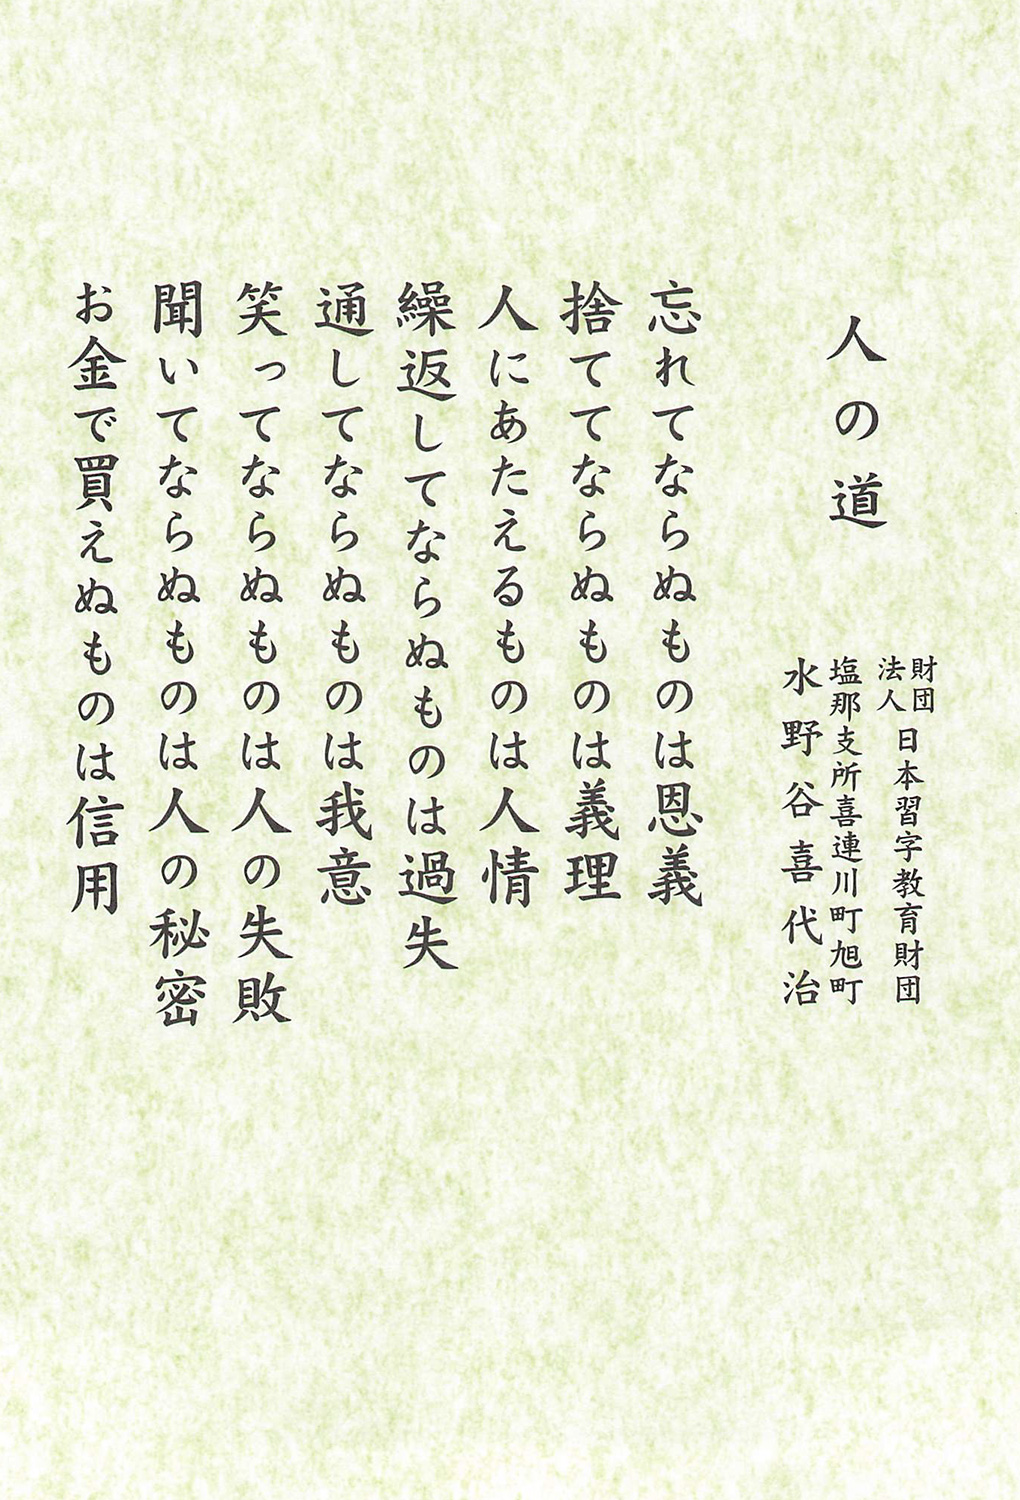 人の道
財団法人 日本習字教育財団
塩那支所喜連川町旭町
水野谷喜代治
忘れてならぬものは恩義
捨ててならぬものは義理
人にあたえるものは人情
繰返してならぬものは過失
通してならぬものは我意
笑ってならぬものは人の失敗
聞いてならぬものは人の秘密
お金で買えぬものは信用